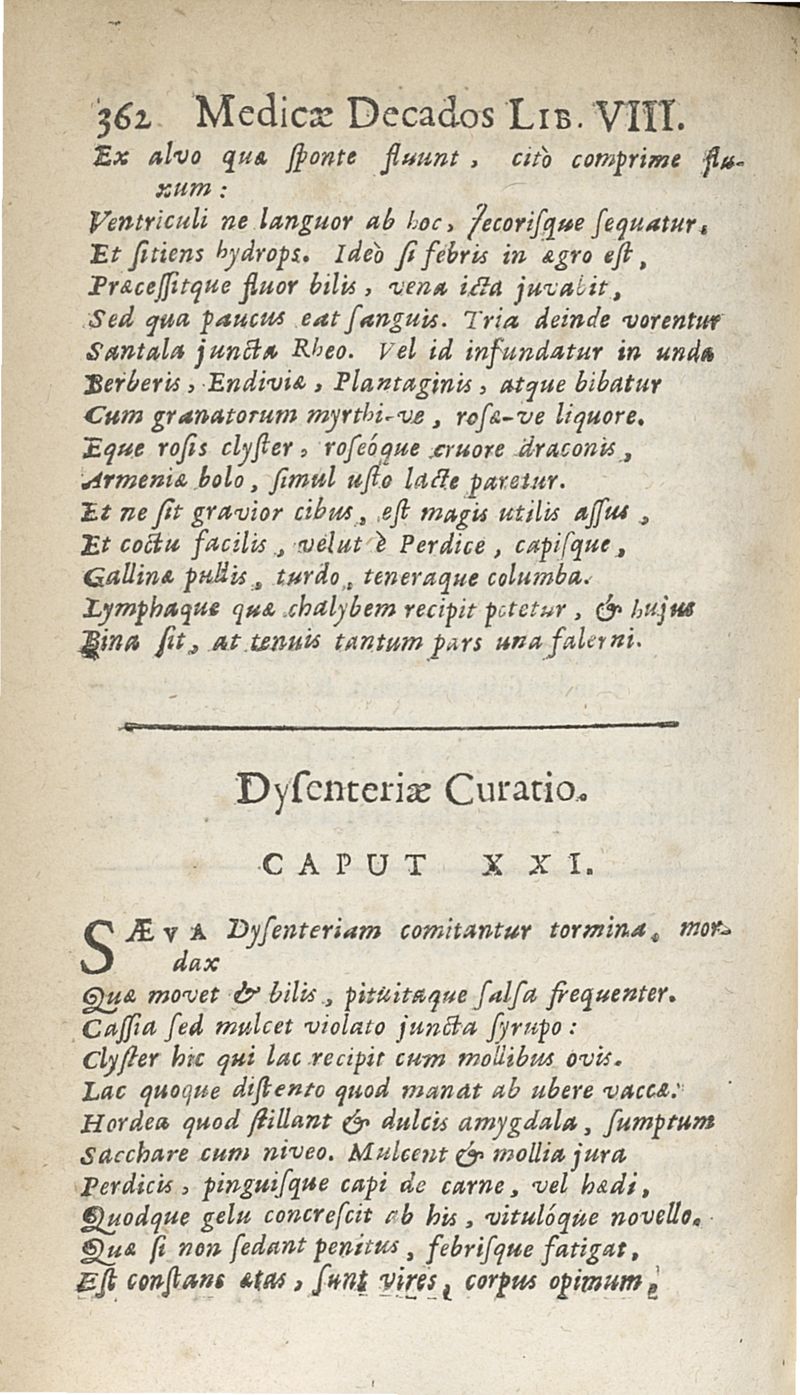 362 Medicæ Decados LIB. VIII.
Ex alvo quæ ſponte fluunt, citò comprime flu-
xum:
Ventriculi ne languor ab hoc, Jecoriſque ſequatur,
Et ſitiens hydrops. Ideò ſi febris in ægro eſt,
Præceſſitque fluor bilis, vena icta juvabit,
Sed qua paucus eat ſanguis. Tria deinde vorentur
Santala juncta Rheo. Vel id infundatur in unda
Berberis, Endiviæ, Plantaginis, atque bibatur
Cum granatorum myrthi-ve, roſæ-ve liquore.
Eque roſis clyſter, roſeóque cruore draconis,
Armeniæ bolo, ſimul uſto lacte paretur.
Et ne ſit gravior cibus, eſt magis utilis aſſus,
Et coctu facilis, velut è Perdice, capiſque,
Gallinæ pullis, turdo, teneraque columba.
Lymphaque quæ chalybem recipit potetur, & hujus
Bina ſit, at tenuis tantum pars una falerni.
Dyſenteriæ Curatio.
CAPUT XXI.
SÆVA Dyſenteriam comitantur tormina, mor-
dax
Quæ movet & bilis, pituitaque ſalſa frequenter.
Caſſia ſed mulcet violato juncta ſyrupo:
Clyſter hic qui lac recipit cum mollibus ovis.
Lac quoque diſtento quod manat ab ubere vaccæ.
Hordea quod ſtillant & dulcis amygdala, ſumptum
Sacchare cum niveo. Mulcent & mollia jura
Perdicis, pinguiſque capi de carne, vel hædi,
Quodque gelu concreſcit ab his, vitulóque novello.
Quæ ſi non ſedant penitus, febriſque fatigat,
Eſt conſtans ætas, ſunt vires, corpus opimum,